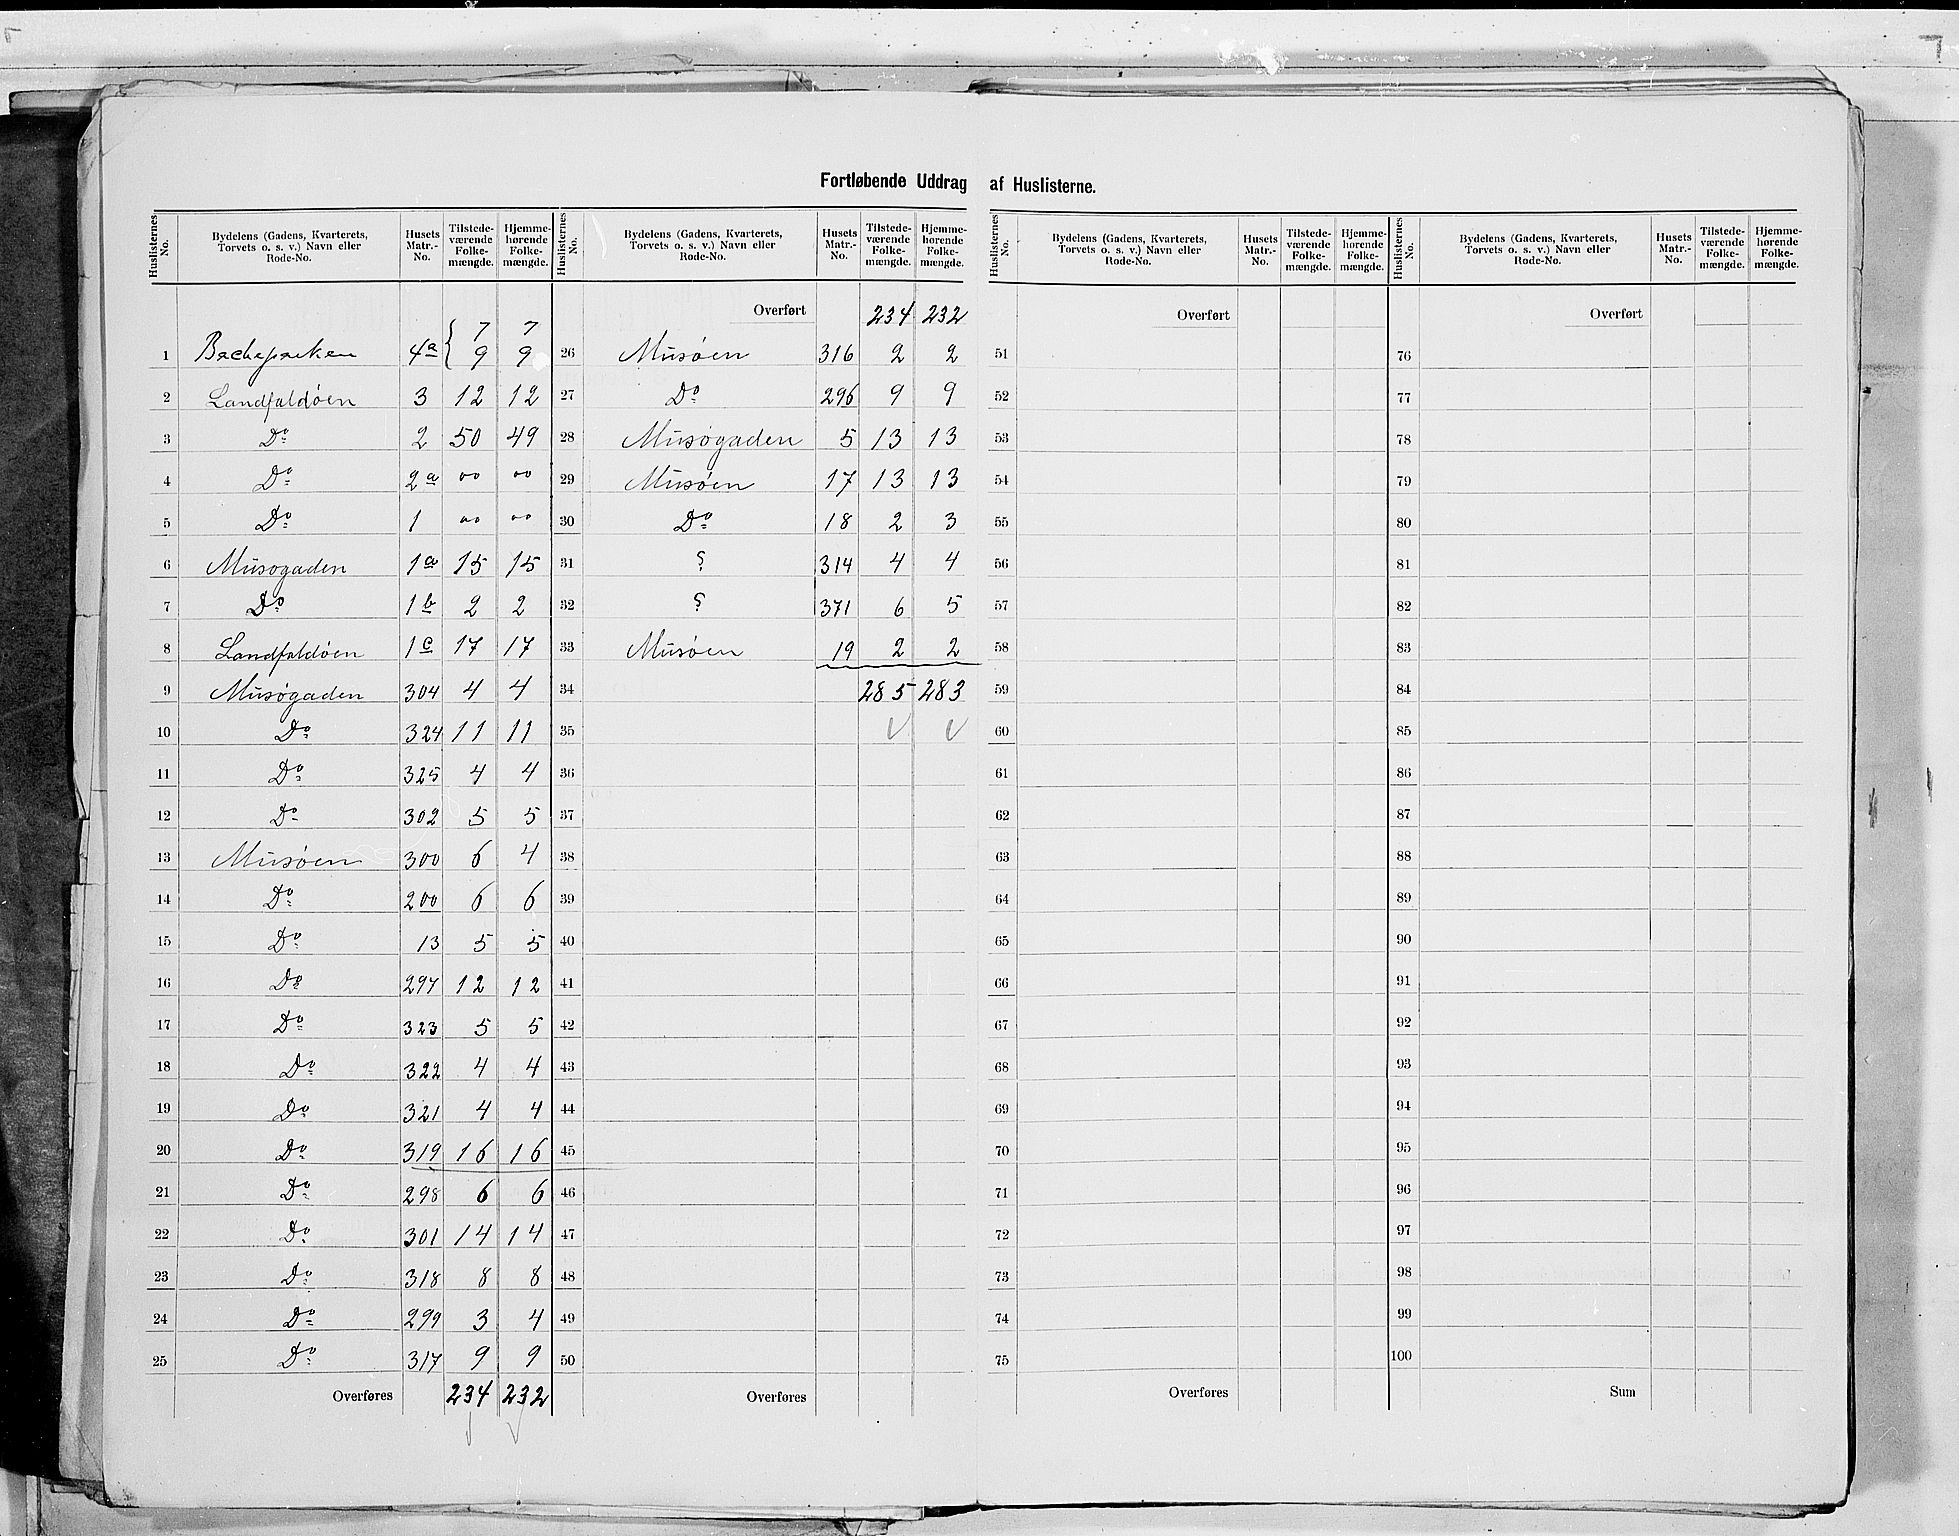 Fortløbende Uddrag af Huslisterne.
Huslisternes No. | Bydelens (Gadens, Kvarterets, Torvets o. s. v.) Navn eller Rode-No. | Husets Matr.-No. | Tilstede-værende Folke-mængde. | Hjemme-hørende Folke-mængde.
7 7
1 Bacheparken 4a { 9 9
2 Landfaldøen 3 12 12
3 Do 2 50 49
4 Do 2a oo oo
5 Do 1 oo oo
6 Musøgaden 1a 15 15
7 Do 1b 2 2
8 Landfaldøen 1c 17 17
9 Musøgaden 304 4 4
10 Do 324 11 11
11 Do 325 4 4
12 Do 302 5 5
13 Musøen 300 6 4
14 Do 200 6 6
15 Do 13 5 5
16 Do 297 12 12
17 Do 323 5 5
18 Do 322 4 4
19 Do 321 4 4
20 Do 319 16 16
21 Do 298 6 6
22 Do 301 14 14
23 Do 318 8 8
24 Do 299 3 4
25 Do 317 9 9
Overføres 234 232
Huslisternes No. | Bydelens (Gadens, Kvarterets, Torvets o. s. v.) Navn eller Rode-No. | Husets Matr.-No. | Tilstede-værende Folke-mængde. | Hjemme-hørende Folke-mængde.
Overført 234 232
26 Musøen 316 2 2
27 Do 296 9 9
28 Musøgaden 5 13 13
29 Musøen 17 13 13
30 Do 18 2 3
31 ? 314 4 4
32 ? 371 6 5
33 Musøen 19 2 2
34 285 283
35
36
37
38
39
40
41
42
43
44
45
46
47
48
49
50
Overføres
Huslisternes No. | Bydelens (Gadens, Kvarterets, Torvets o. s. v.) Navn eller Rode-No. | Husets Matr.-No. | Tilstede-værende Folke-mængde. | Hjemme-hørende Folke-mængde.
Overført
51
52
53
54
55
56
57
58
59
60
61
62
63
64
65
66
67
68
69
70
71
72
73
74
75
Overføres
Huslisternes No. | Bydelens (Gadens, Kvarterets, Torvets o. s. v.) Navn eller Rode-No. | Husets Matr.-No. | Tilstede-værende Folke-mængde. | Hjemme-hørende Folke-mængde.
Overført
76
77
78
79
80
81
82
83
84
85
86
87
88
89
90
91
92
93
94
95
96
97
98
99
100
Sum